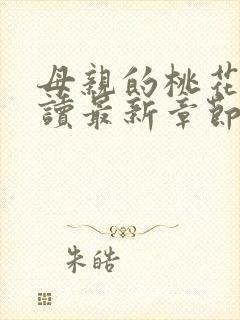 母親的桃花
讀最新章節
朱皓